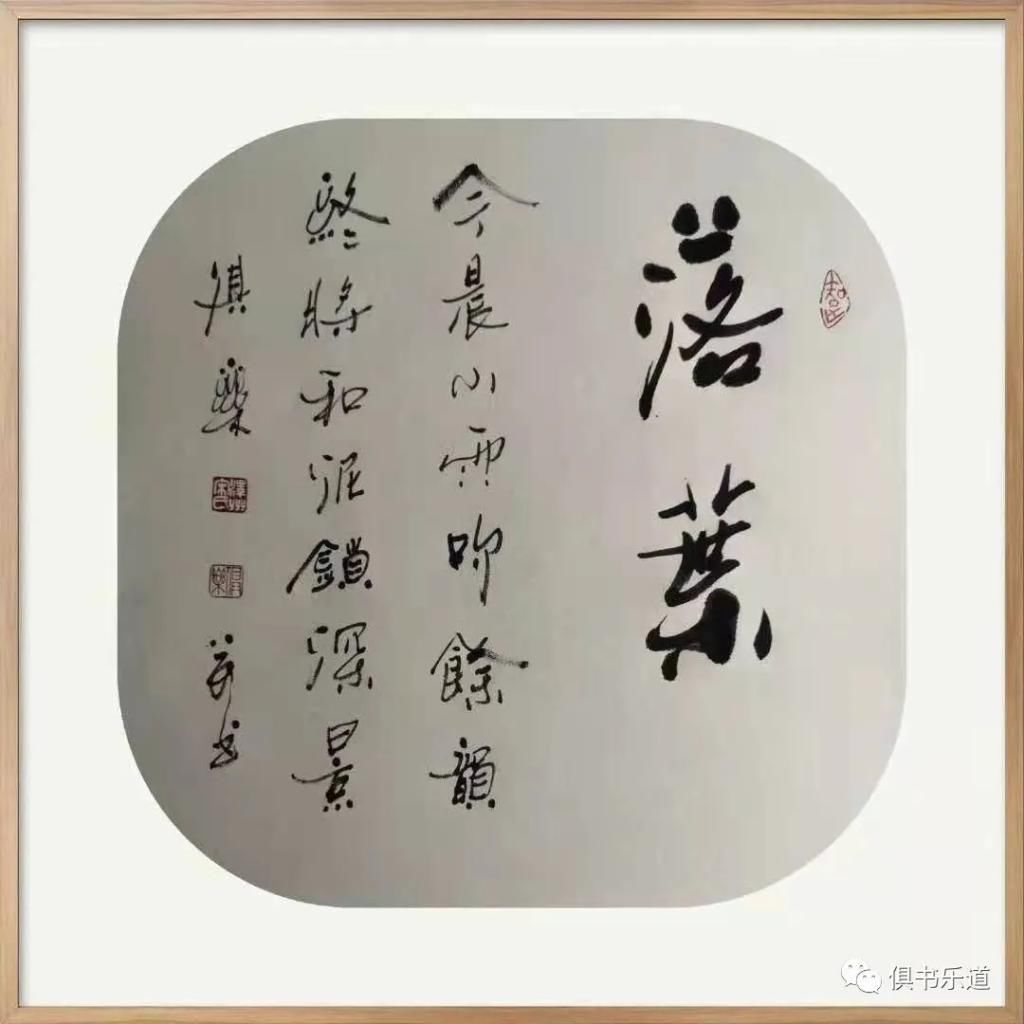 知足
落葉
今晨小雨餘韻
終將和泥鎖深景
俱樂
书
俱书乐道